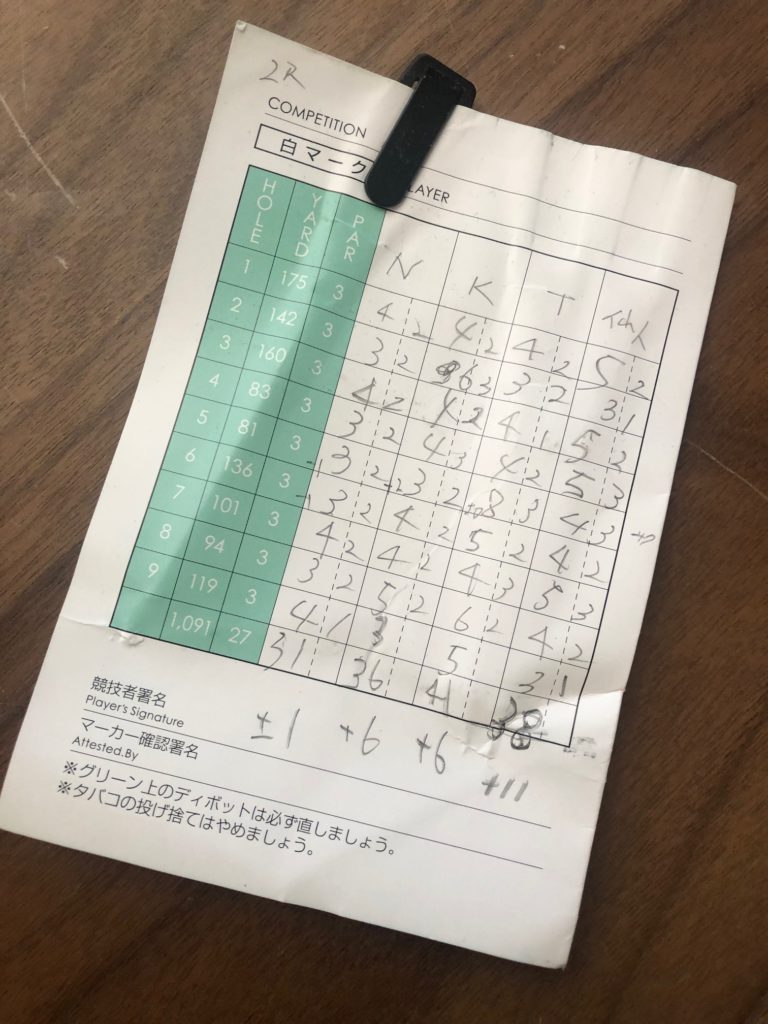 2R
COMPETITION
白マーク
LAYER
HOLE YARD PAR N K T
1 175 3 4 2 4 2 4 2 5 2
2 142 3 3 2 6 3 3 2 3 1
3 160 3 4 2 4 2 4 1 5 2
4 83 3 3 2 4 3 4 2 5 3
5 81 3 3 2 3 2 8 3 4 3
6 136 3 3 2 4 2 5 2 4 2
7 101 3 4 2 4 2 4 3 5 3
8 94 3 3 2 5 2 6 2 4 2
9 119 3 4 1 3 5 3 1
1,091 27 31 36 41 38
競技者署名
Player's Signature
±1 +6 +6 +11
マーカー確認署名
Attested.By
※グリーン上のディボットは必ず直しましょう。
※タバコの投げ捨てはやめましょう。